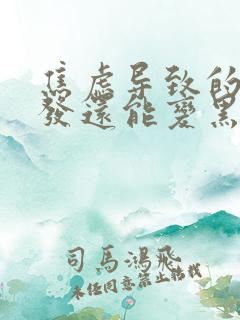 焦虑导致的
发还能变黑
司马鸿飞
未经同意禁止转载